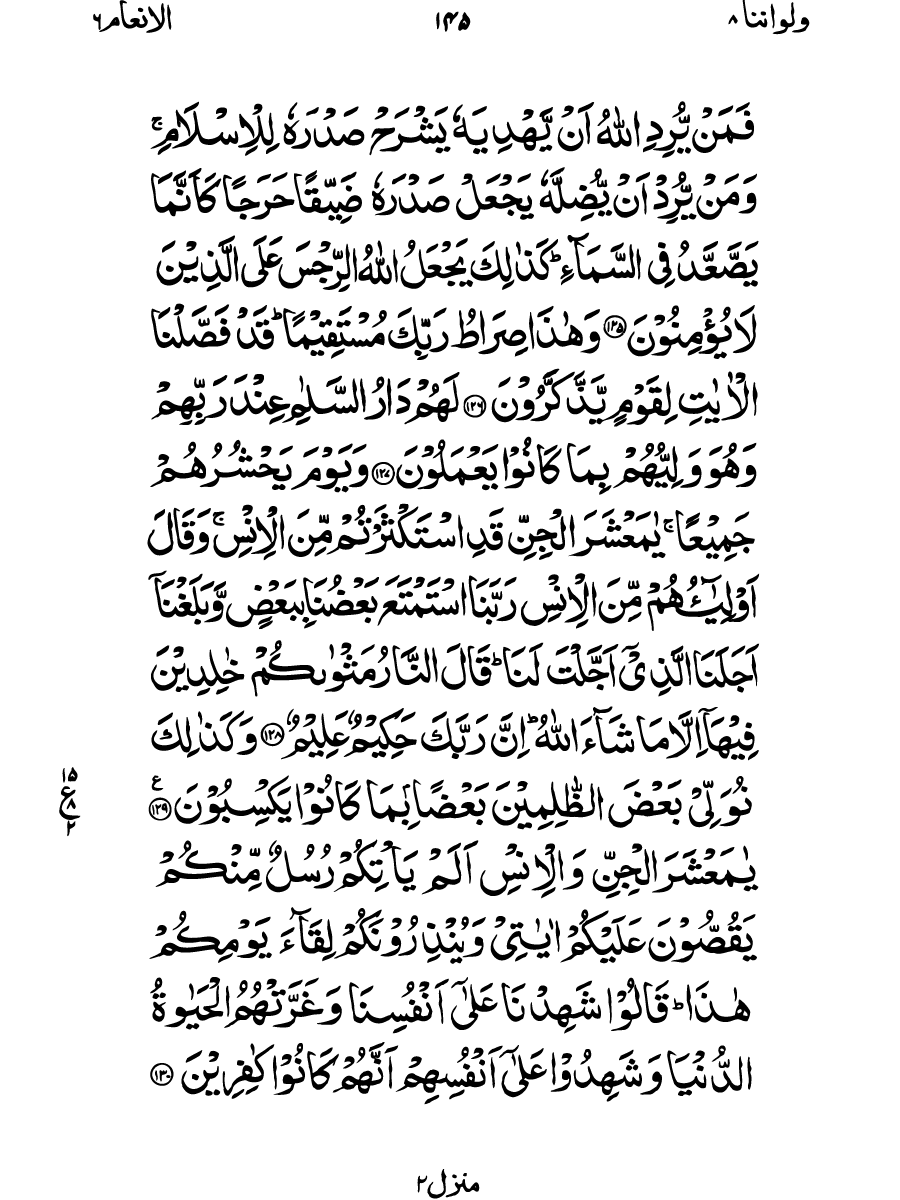 ولواننا ۸ ۱۴۵ الانعام ۶
فَمَنْ يُّرِدِ اللّٰهُ اَنْ يَّهْدِيَهٗ يَشْرَحْ صَدْرَهٗ لِلْاِسْلَامِ ۚ
وَمَنْ يُّرِدْ اَنْ يُّضِلَّهٗ يَجْعَلْ صَدْرَهٗ ضَيِّقًا حَرَجًا كَاَنَّمَا
يَصَّعَّدُ فِى السَّمَآءِ ؕ كَذٰلِكَ يَجْعَلُ اللّٰهُ الرِّجْسَ عَلَى الَّذِيْنَ
لَا يُؤْمِنُوْنَ ۱۲۵ وَهٰذَا صِرَاطُ رَبِّكَ مُسْتَقِيْمًا ؕ قَدْ فَصَّلْنَا
الْاٰيٰتِ لِقَوْمٍ يَّذَّكَّرُوْنَ ۱۲۶ لَهُمْ دَارُ السَّلٰمِ عِنْدَ رَبِّهِمْ
وَهُوَ وَلِيُّهُمْ بِمَا كَانُوْا يَعْمَلُوْنَ ۱۲۷ وَيَوْمَ يَحْشُرُهُمْ
جَمِيْعًا ۚ يٰمَعْشَرَ الْجِنِّ قَدِ اسْتَكْثَرْتُمْ مِّنَ الْاِنْسِ ۚ وَقَالَ
اَوْلِيٰٓـُٔهُمْ مِّنَ الْاِنْسِ رَبَّنَا اسْتَمْتَعَ بَعْضُنَا بِبَعْضٍ وَّبَلَغْنَاۤ
اَجَلَنَا الَّذِىْۤ اَجَّلْتَ لَنَا ؕ قَالَ النَّارُ مَثْوٰىكُمْ خٰلِدِيْنَ
فِيْهَاۤ اِلَّا مَا شَآءَ اللّٰهُ ؕ اِنَّ رَبَّكَ حَكِيْمٌ عَلِيْمٌ ۱۲۸ وَكَذٰلِكَ
نُوَلِّىْ بَعْضَ الظّٰلِمِيْنَ بَعْضًۢا بِمَا كَانُوْا يَكْسِبُوْنَ ۱۲۹ ع
۱۵
ع ۸
۲
يٰمَعْشَرَ الْجِنِّ وَالْاِنْسِ اَلَمْ يَاْتِكُمْ رُسُلٌ مِّنْكُمْ
يَقُصُّوْنَ عَلَيْكُمْ اٰيٰتِىْ وَيُنْذِرُوْنَكُمْ لِقَآءَ يَوْمِكُمْ
هٰذَا ؕ قَالُوْا شَهِدْنَا عَلٰٓى اَنْفُسِنَا وَغَرَّتْهُمُ الْحَيٰوةُ
الدُّنْيَا وَشَهِدُوْا عَلٰٓى اَنْفُسِهِمْ اَنَّهُمْ كَانُوْا كٰفِرِيْنَ ۱۳۰
منزل ۲